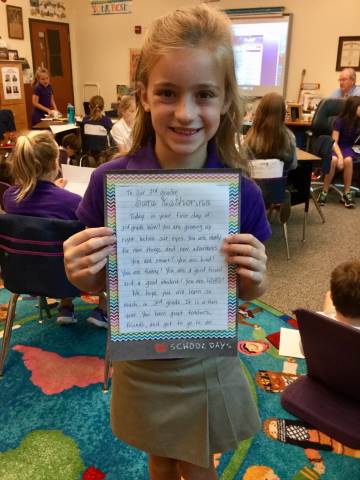 To Our 3rd grader,
Sara Katherine
Today is your first day of
3rd grade. Wow! You are growing up
right before our eyes. You are ready
for new things and new adventures.
You are smart! You are kind!
You are funny! You are a good friend
and a good student!
We hope you will learn so
much in 3rd grade. It is a fun
year. You have great teachers,
friends, and get to go to
SCHOOL DAYS